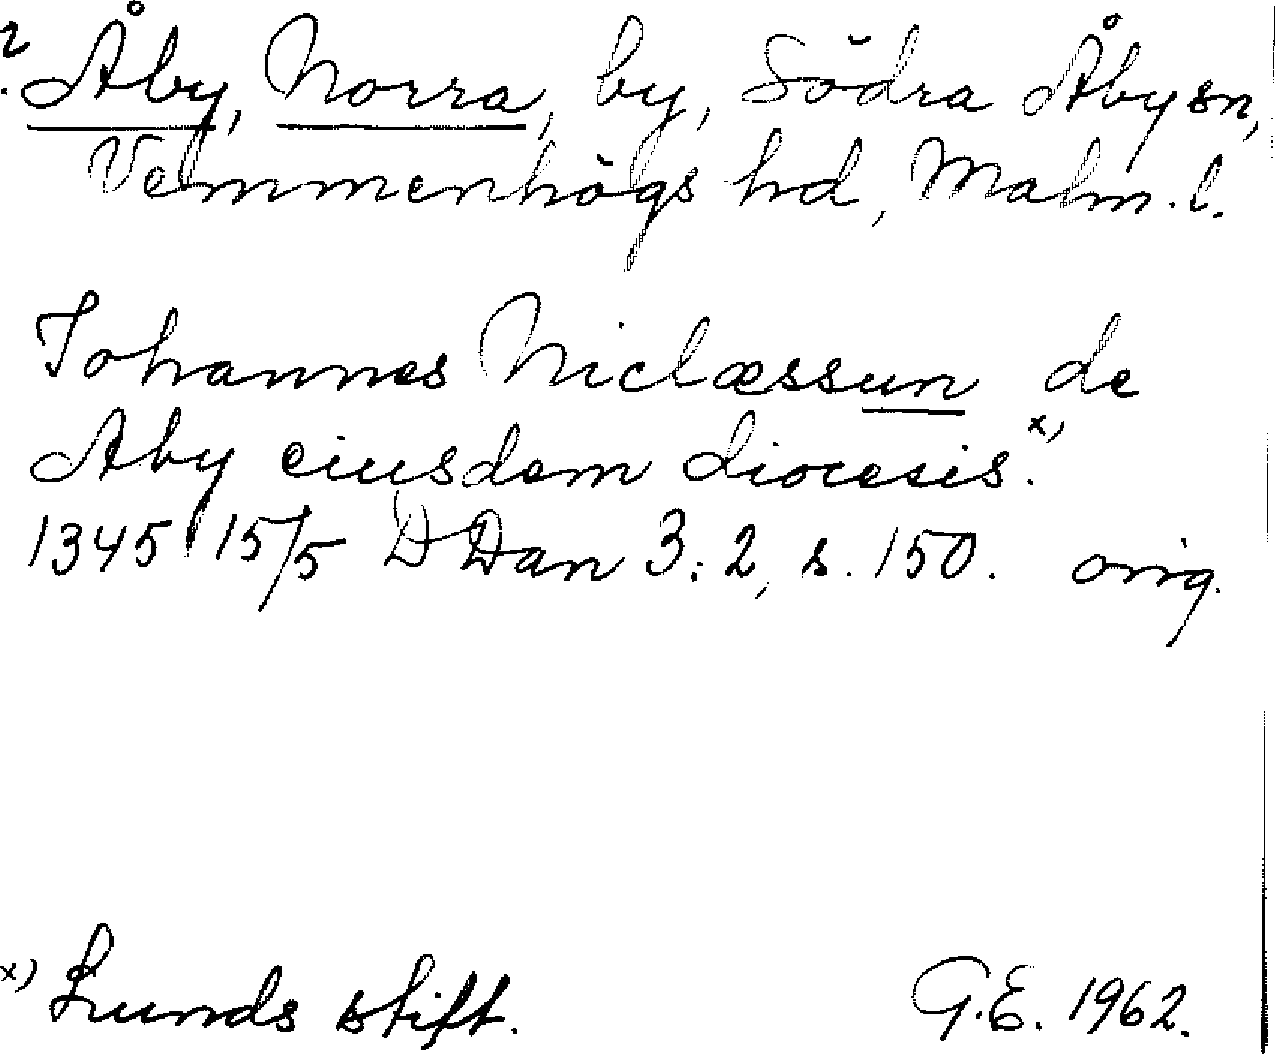 ? Åby, Norra, by, Södra Åby sn,
Vemmenhögs hd, Malm. l.
Johannes Niclæssun de
Aby eiusdem diocesis. x)
1345 15/5 D Dan 3: 2, s. 150. orig.
x) Lunds stift. G.E. 1962.